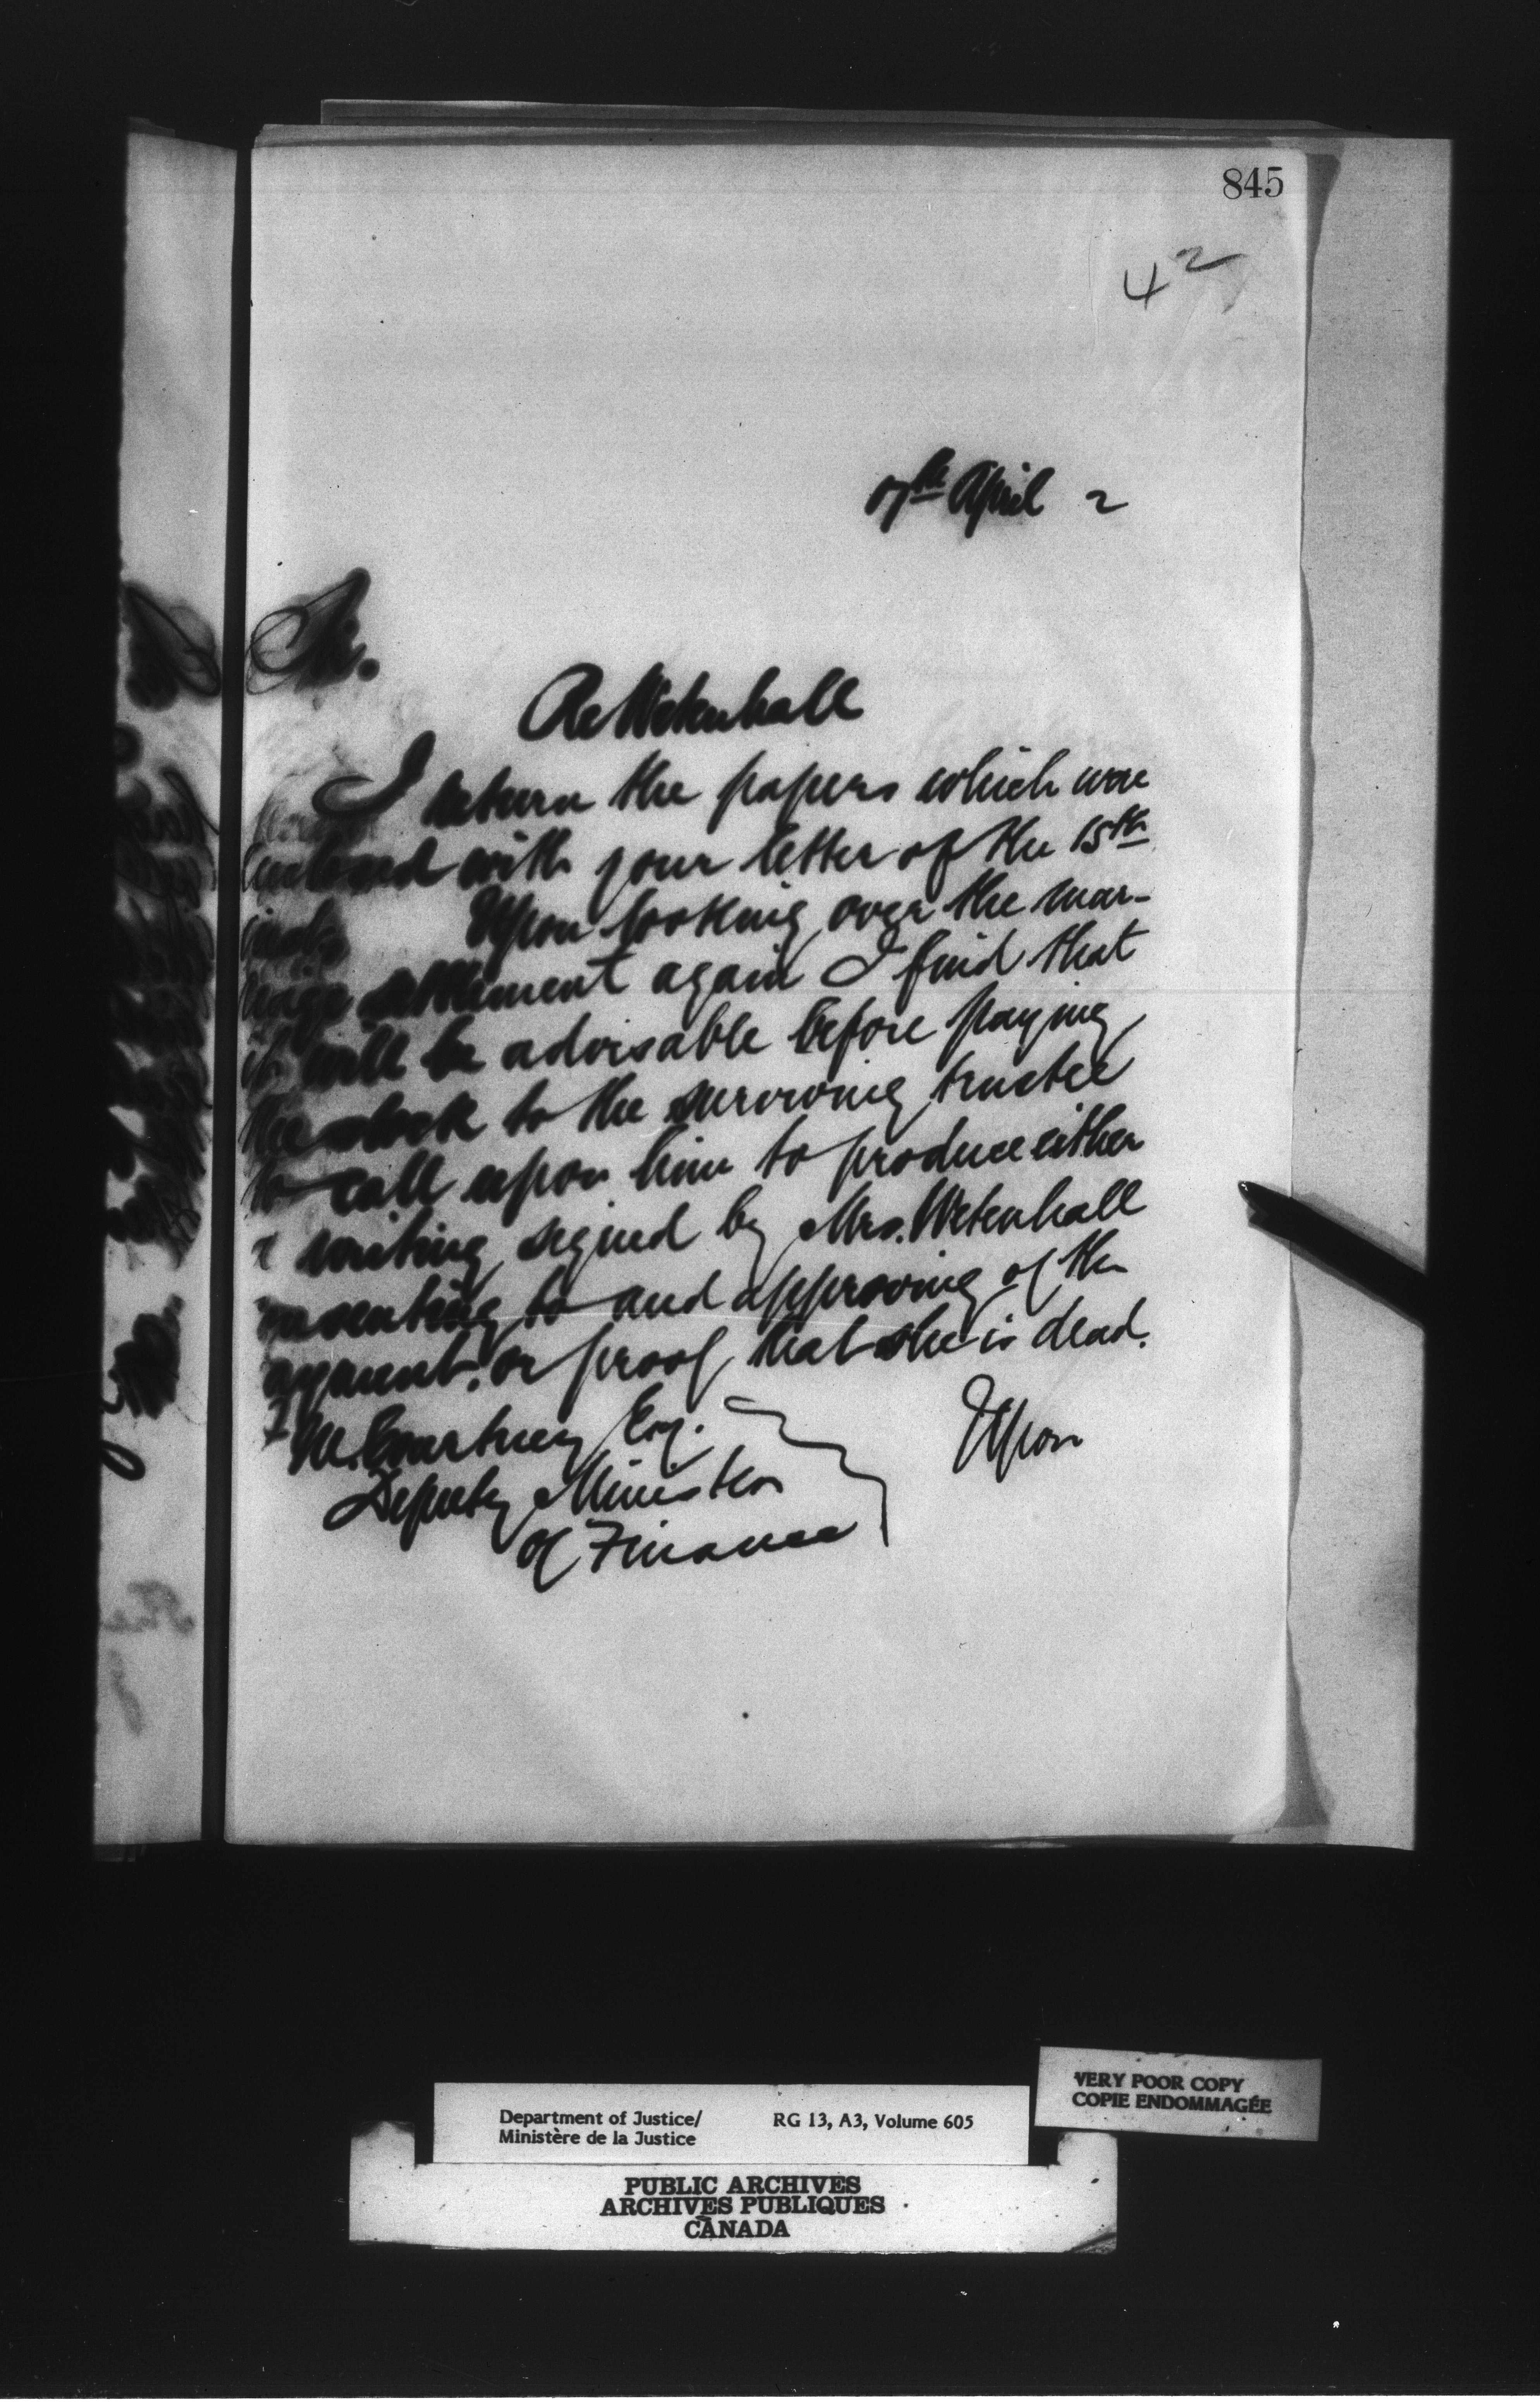 845
42
17th April 2
Sir.
Re Wetenhall
I return the papers which were
enclosed with your letter of the 15th
inst. Upon looking over the mar-
riage settlement again I find that
it will be advisable before paying
the stock to the surviving trustee
to call upon him to produce either
a writing signed by Mrs. Wetenhall
onsenting to and approving of the
ayment, or proof that she is dead.
Upon
M. Courtney Esq.
Deputy Minister
of Finance
VERY POOR COPY
COPIE ENDOMMAGÉE
Department of Justice/ RG 13, A3, Volume 605
Ministère de la Justice
PUBLIC ARCHIVES
ARCHIVES PUBLIQUES
CANADA